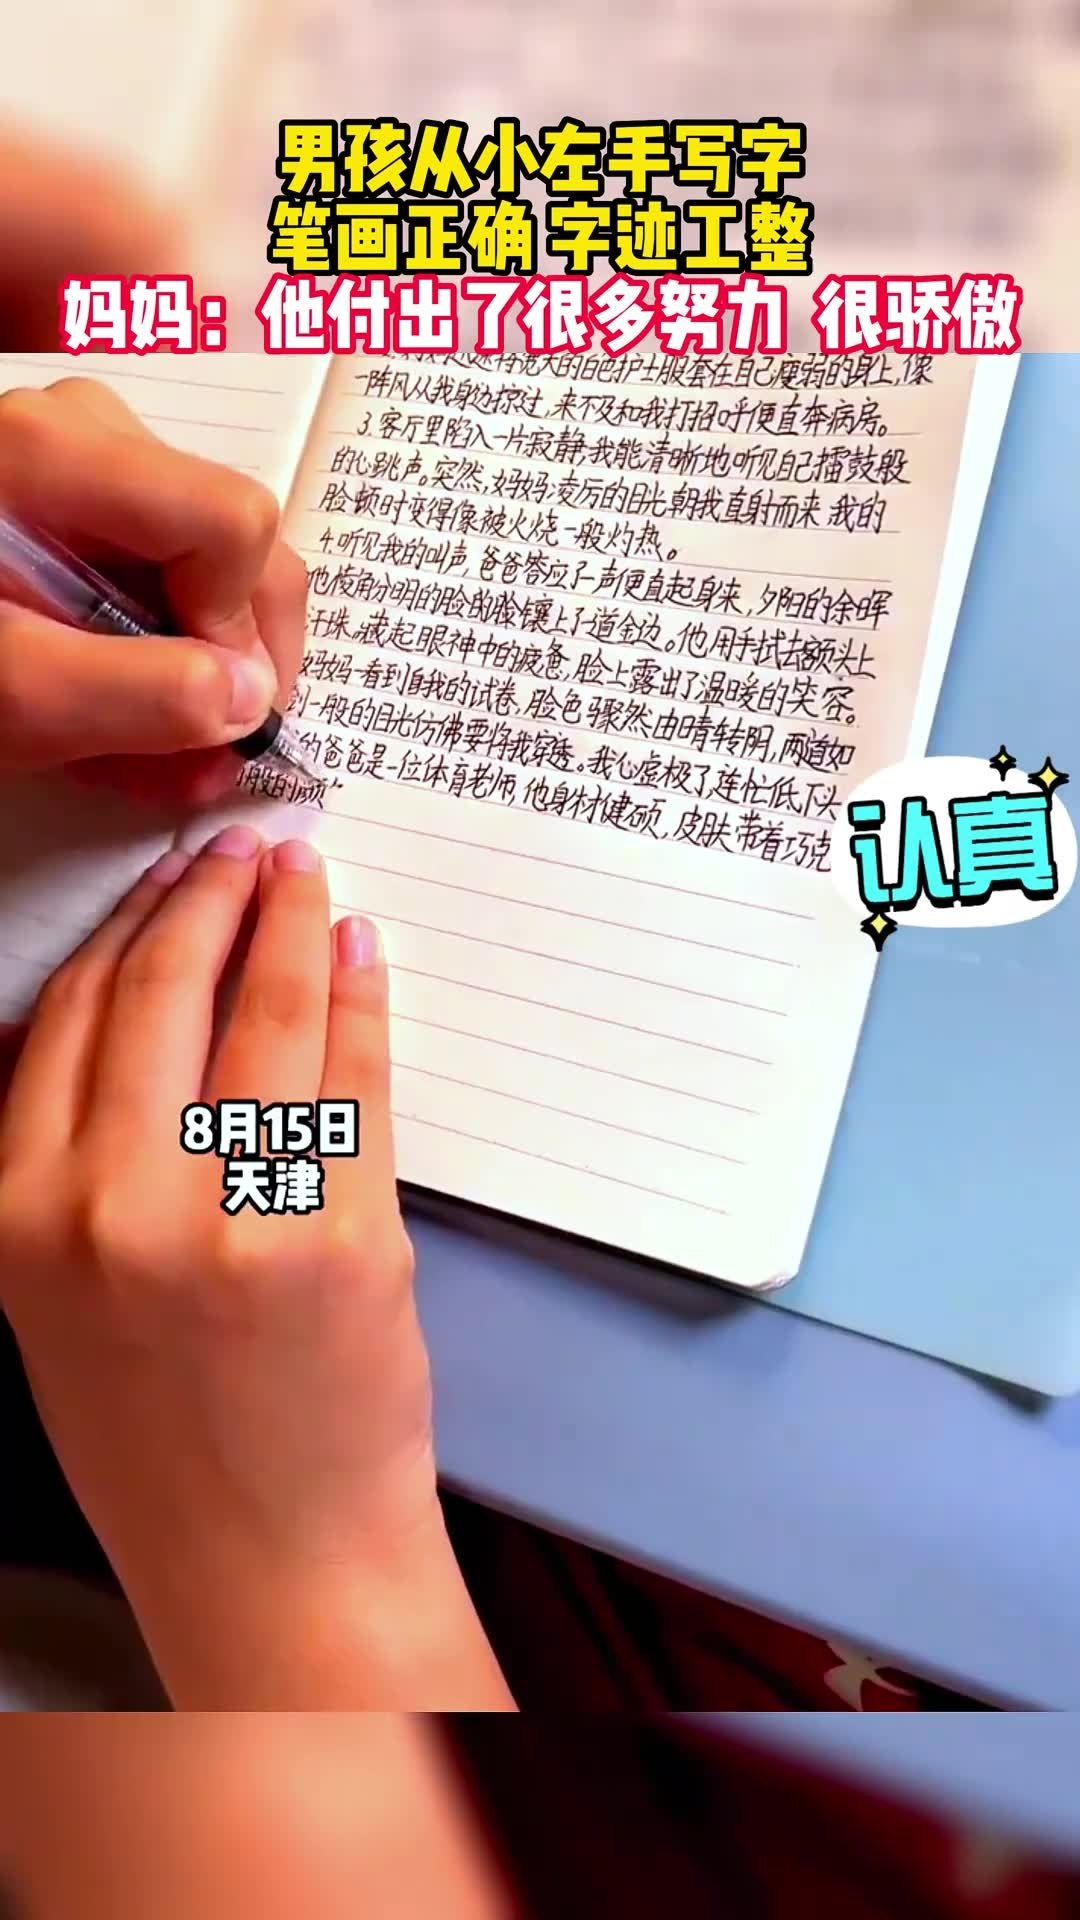 男孩从小左手写字
笔画正确 字迹工整
妈妈：他付出了很多努力 很骄傲
将宽大的白色护士服套在自己瘦弱的身上，像
一阵风从我身边掠过，来不及和我打招呼便直奔病房。
3.客厅里陷入一片寂静，我能清晰地听见自己擂鼓般
的心跳声。突然，妈妈凌厉的目光朝我直射而来 我的
脸顿时变得像被火烧一般灼热。
4.听见我的叫声，爸爸答应了一声便直起身来，夕阳的余晖
他棱角分明的脸的脸镶上了道金边。他用手拭去额头上
汗珠。藏起眼神中的疲惫，脸上露出了温暖的笑容。
妈妈一看到自我的试卷，脸色骤然由晴转阴，两道如
剑一般的目光仿佛要将我穿透。我心虚极了，连忙低下头
的爸爸是一位体育老师，他身材健硕，皮肤带着巧克
般的颜
认真
8月15日
天津